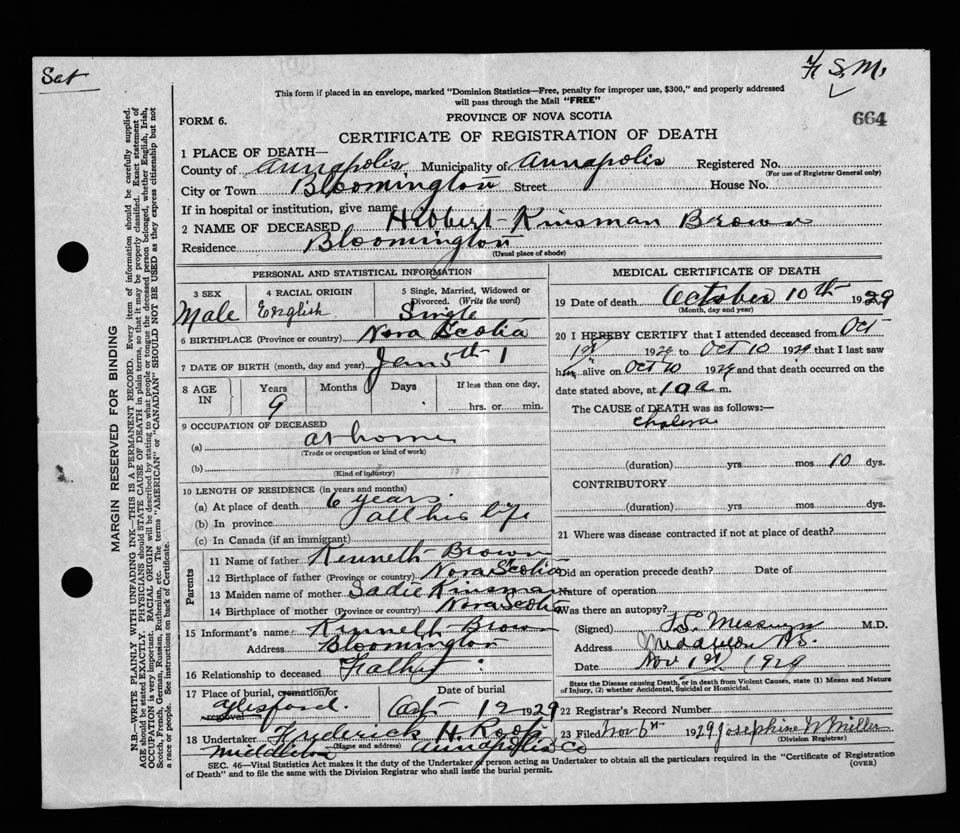 Sat
F S. M.
This form if placed in an envelope, marked "Dominion Statistics—Free, penalty for improper use, $300," and properly addressed
will pass through the Mail "FREE"
PROVINCE OF NOVA SCOTIA
664
FORM 6.
CERTIFICATE OF REGISTRATION OF DEATH
1 PLACE OF DEATH—
County of Annapolis Municipality of Annapolis Registered No.
(For use of Registrar General only)
City or Town Bloomington Street House No.
If in hospital or institution, give name
2 NAME OF DECEASED Hibbert Kinsman Brown
Residence Bloomington
(Usual place of abode)
PERSONAL AND STATISTICAL INFORMATION
3 SEX Male
4 RACIAL ORIGIN English
5 Single, Married, Widowed or Divorced. (Write the word) Single
6 BIRTHPLACE (Province or country) Nova Scotia
7 DATE OF BIRTH (month, day and year) Jan 5th 1
8 AGE IN Years 9 Months Days If less than one day, hrs. or min.
9 OCCUPATION OF DECEASED
(a) at home
(Trade or occupation or kind of work)
(b)
(Kind of industry)
10 LENGTH OF RESIDENCE (in years and months)
(a) At place of death 6 years
(b) In province all his life
(c) In Canada (if an immigrant)
Parents
11 Name of father Kenneth Brown
12 Birthplace of father (Province or country) Nova Scotia
13 Maiden name of mother Sadie Kinsman
14 Birthplace of mother (Province or country) Nova Scotia
15 Informant's name Kenneth Brown
Address Bloomington
16 Relationship to deceased Father
17 Place of burial, cremation or removal Aylesford. Date of burial Oct 12 1929
18 Undertaker Frederick H. Roop
(Name and address)
Middleton Annapolis Co
MEDICAL CERTIFICATE OF DEATH
19 Date of death October 10th 1929
(Month, day and year)
20 I HEREBY CERTIFY that I attended deceased from Oct
1st 1929 to Oct 10 1929 that I last saw
him alive on Oct 10 1929 and that death occurred on the
date stated above, at 10 a m.
The CAUSE of DEATH was as follows:—
Cholera
(duration) yrs mos 10 dys.
CONTRIBUTORY
(duration) yrs mos dys.
21 Where was disease contracted if not at place of death?
Did an operation precede death? Date of
Nature of operation
Was there an autopsy?
(Signed) M.D.
Address Middleton N.S.
Date Nov 1st 1929
State the Disease causing Death, or in death from Violent Causes, state (1) Means and Nature
of Injury, (2) whether Accidental, Suicidal or Homicidal.
22 Registrar's Record Number
23 Filed Nov 6th 1929 Josephine W Miller
(Division Registrar)
SEC. 46—Vital Statistics Act makes it the duty of the Undertaker or person acting as Undertaker to obtain all the particulars required in the "Certificate of Registration
of Death" and to file the same with the Division Registrar who shall issue the burial permit.
(OVER)
MARGIN RESERVED FOR BINDING
N.B.—WRITE PLAINLY WITH UNFADING INK—THIS IS A PERMANENT RECORD. Every item of information should be carefully supplied.
AGE should be stated EXACTLY. PHYSICIANS should STATE CAUSE OF DEATH in plain terms, so that it may be properly classified. Exact statement of
OCCUPATION is very important. RACIAL ORIGIN will be described by stating to what people or tongue the deceased person belonged, whether English, Irish,
Scotch, French, German, Russian, Ruthenian, etc. The terms "AMERICAN" or "CANADIAN" SHOULD NOT BE USED as they express citizenship but not
a race or people. See instructions on back of Certificate.